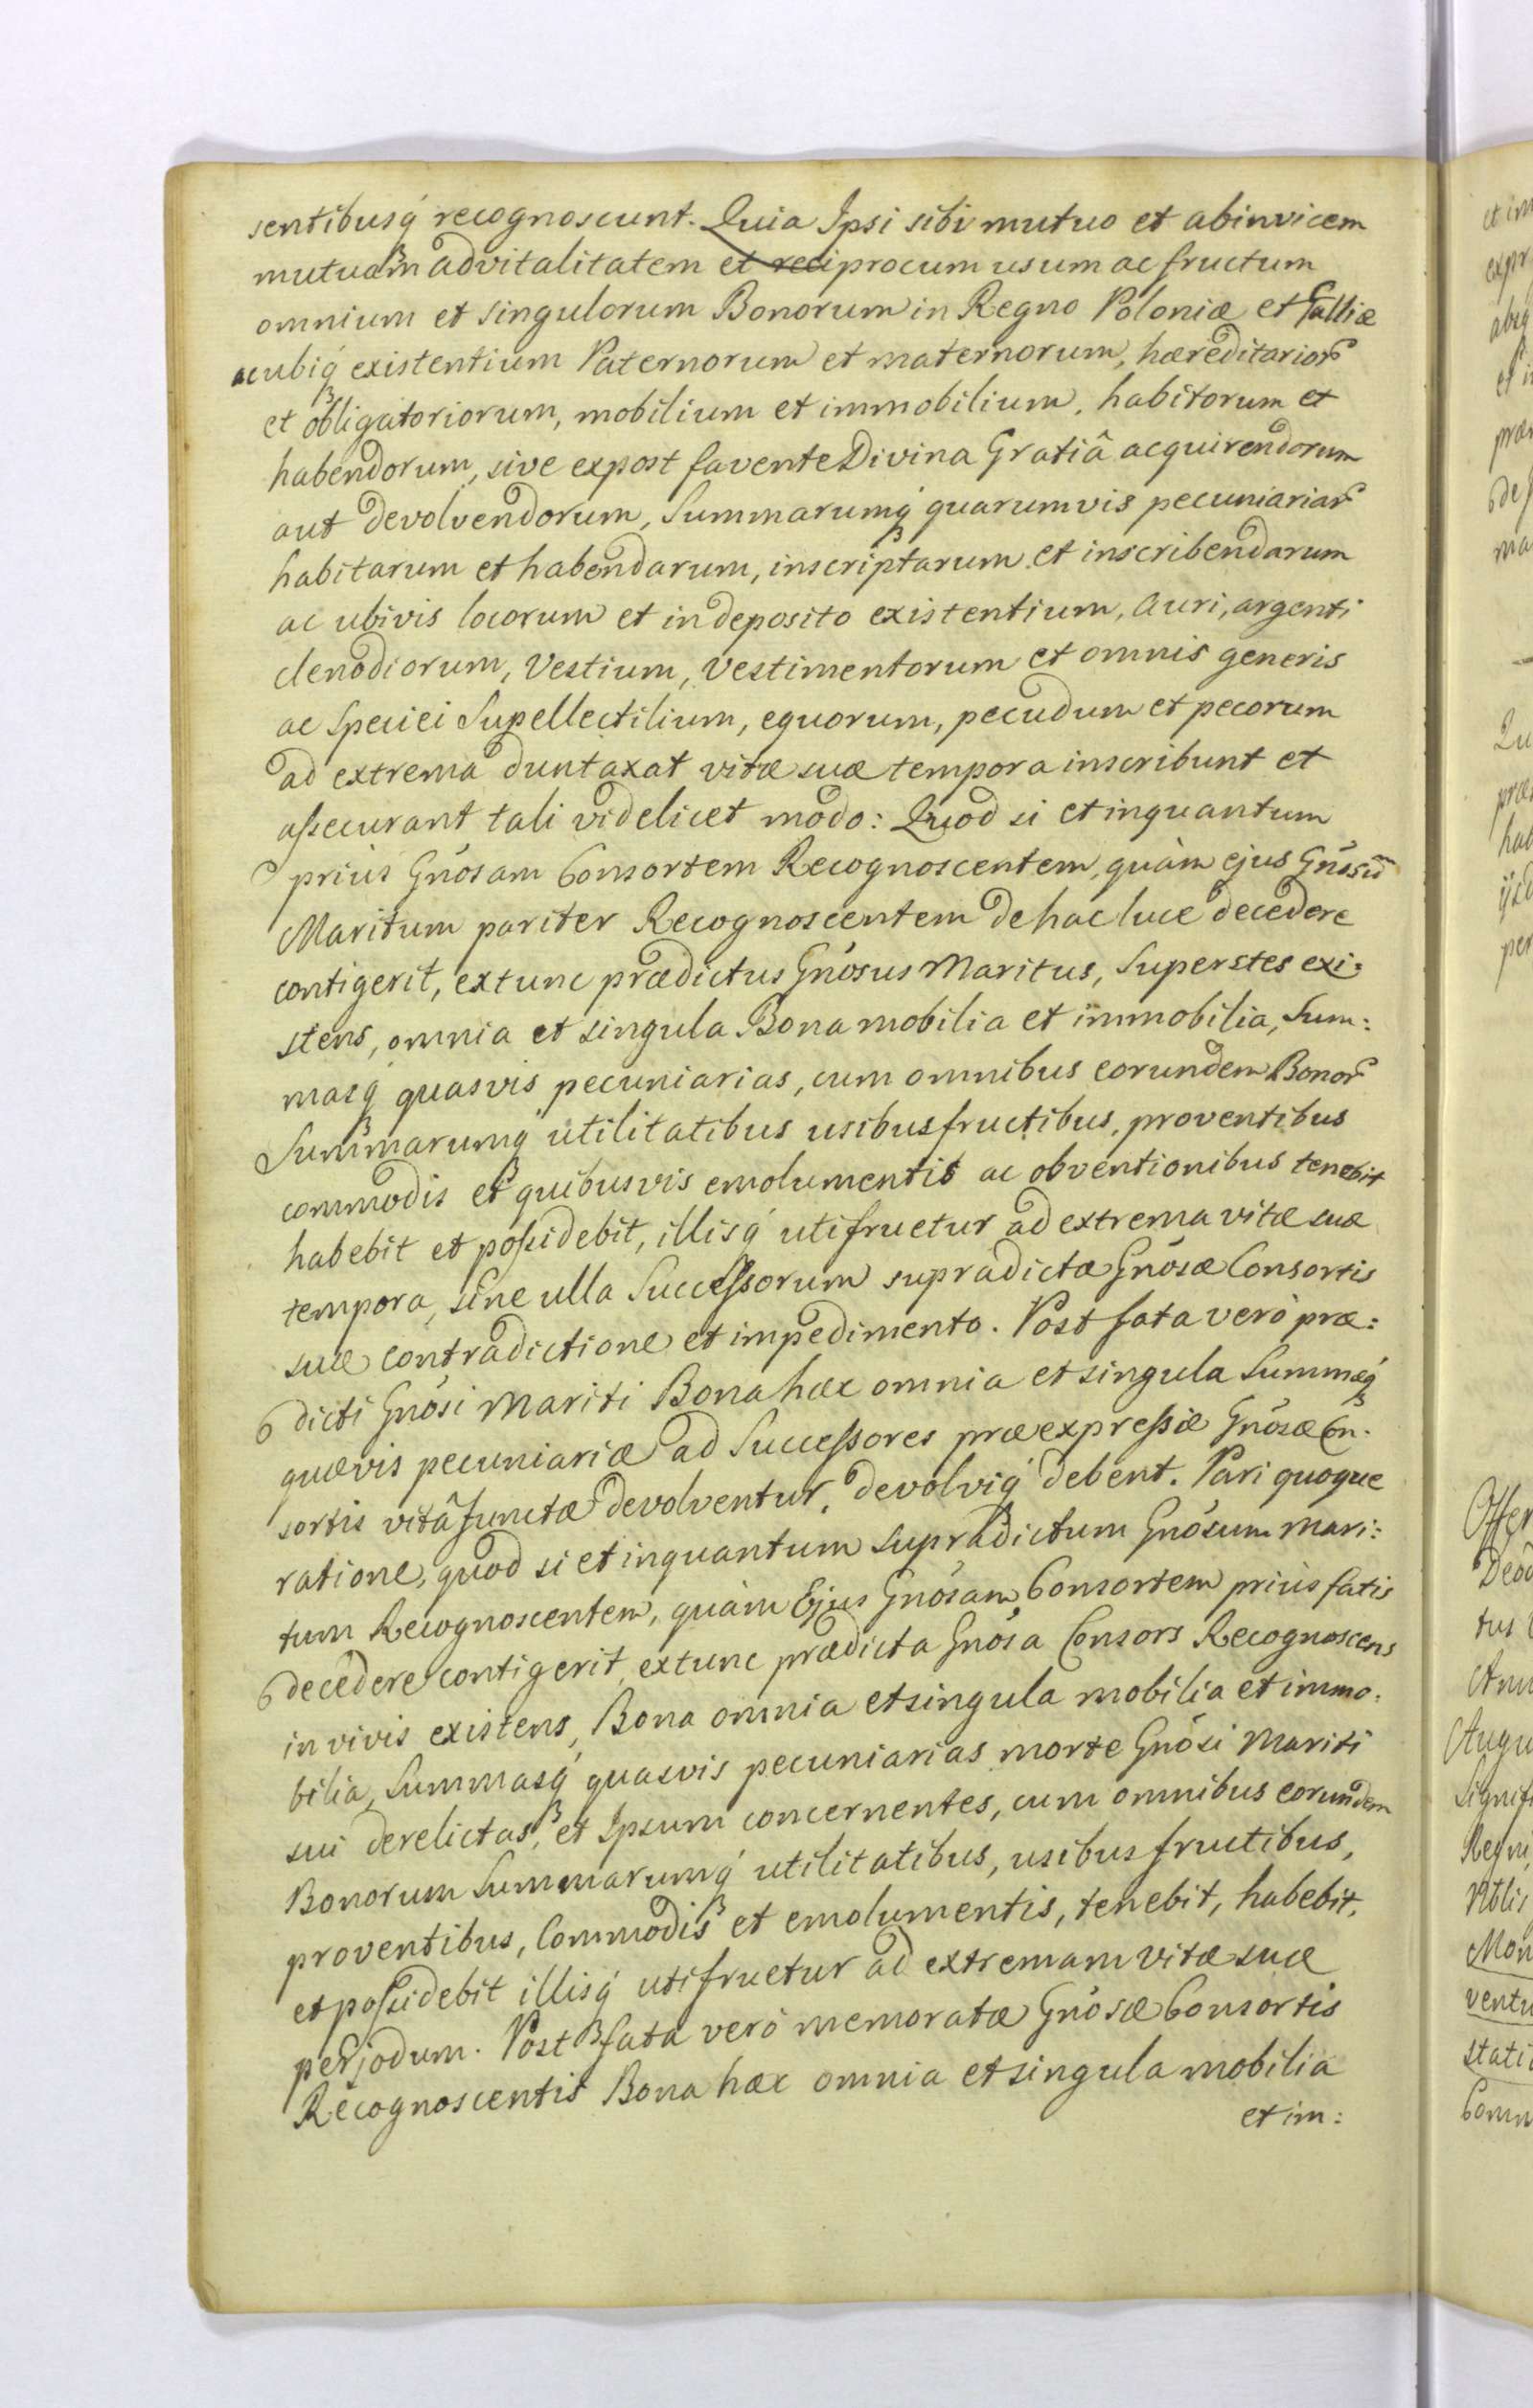 sentibusq́ recognoscunt. Quia Ipsi sibi mutuo et abinvicem
mutuam advitalitatem et reciprocum usum ac fructum
omnium et singulorum Bonorum in Regno Poloniæ et Galliæ
ac ubiq́ existentium Paternorum et maternorum, hæreditarior̃
et obligatoriorum, mobilium et immobilium, habitorum et
habendorum, sive expost favente Divina Gratiâ acquirendorum
aut devolvendorum, Summarumq́ quarumvis pecuniariar̃
habitarum et habendarum, inscriptarum et inscribendarum
ac ubivis locorum et in deposito existentium, Auri, argenti
clenodiorum, Vestium, Vestimentorum et omnis generis
ac Speciei Supellectilium, equorum, pecudum et pecorum
ad extrema duntaxat vitæ suæ tempora inscribunt et
assecurant tali videlicet modo: Quod si et inquantum
prius Gnósam Consortem Recognoscentem, quàm ejus Gnósũ
Maritum pariter Recognoscentem de hac luce decedere
contigerit, extunc prædictus Gnósus Maritus, Superstes exi:
stens, omnia et singula Bona mobilia et immobilia, Sum:
masq́ quasvis pecuniarias, cum omnibus eorundem Bonor̃
Summarumq́ utilitatibus usibusfructibus, proventibus
commodis et quibusvis emolumentis ac obventionibus tenebit
habebit et possidebit, illisq́ utifruetur ad extrema vitæ suæ
tempora, sine ulla Successorum supradictæ Gnósæ Consortis
suæ contradictione et impedimento. Post fata verò præ:
dicti Gnósi Mariti Bona hæc omnia et singula Summæq́
quævis pecuniariæ ad Successores præexpressæ Gnósæ Con:
sortis vitâ functæ devolventur, devolviq́ debent. Pari quoque
ratione, quod si et inquantum supradictum Gnósum Mari:
tum Recognoscentem, quàm Ejus Gnósam Consortem prius fatis
decedere contigerit, extunc prædicta Gnósa Consors Recognoscens
in vivis existens, Bona omnia et singula mobilia et immo:
bilia, Summasq́ quasvis pecuniarias morte Gnósi Mariti
sui derelictas, et Ipsum concernentes, cum omnibus eorundem
Bonorum Summarumq́ utilitatibus, usibusfructibus,
proventibus, Commodis et emolumentis, tenebit, habebit,
et possidebit illisq́ utifruetur ad extremam vitæ suæ
perjodum. Post fata verò memoratæ Gnósæ Consortis
Recognoscentis Bona hæc omnia et singula mobilia
et im: